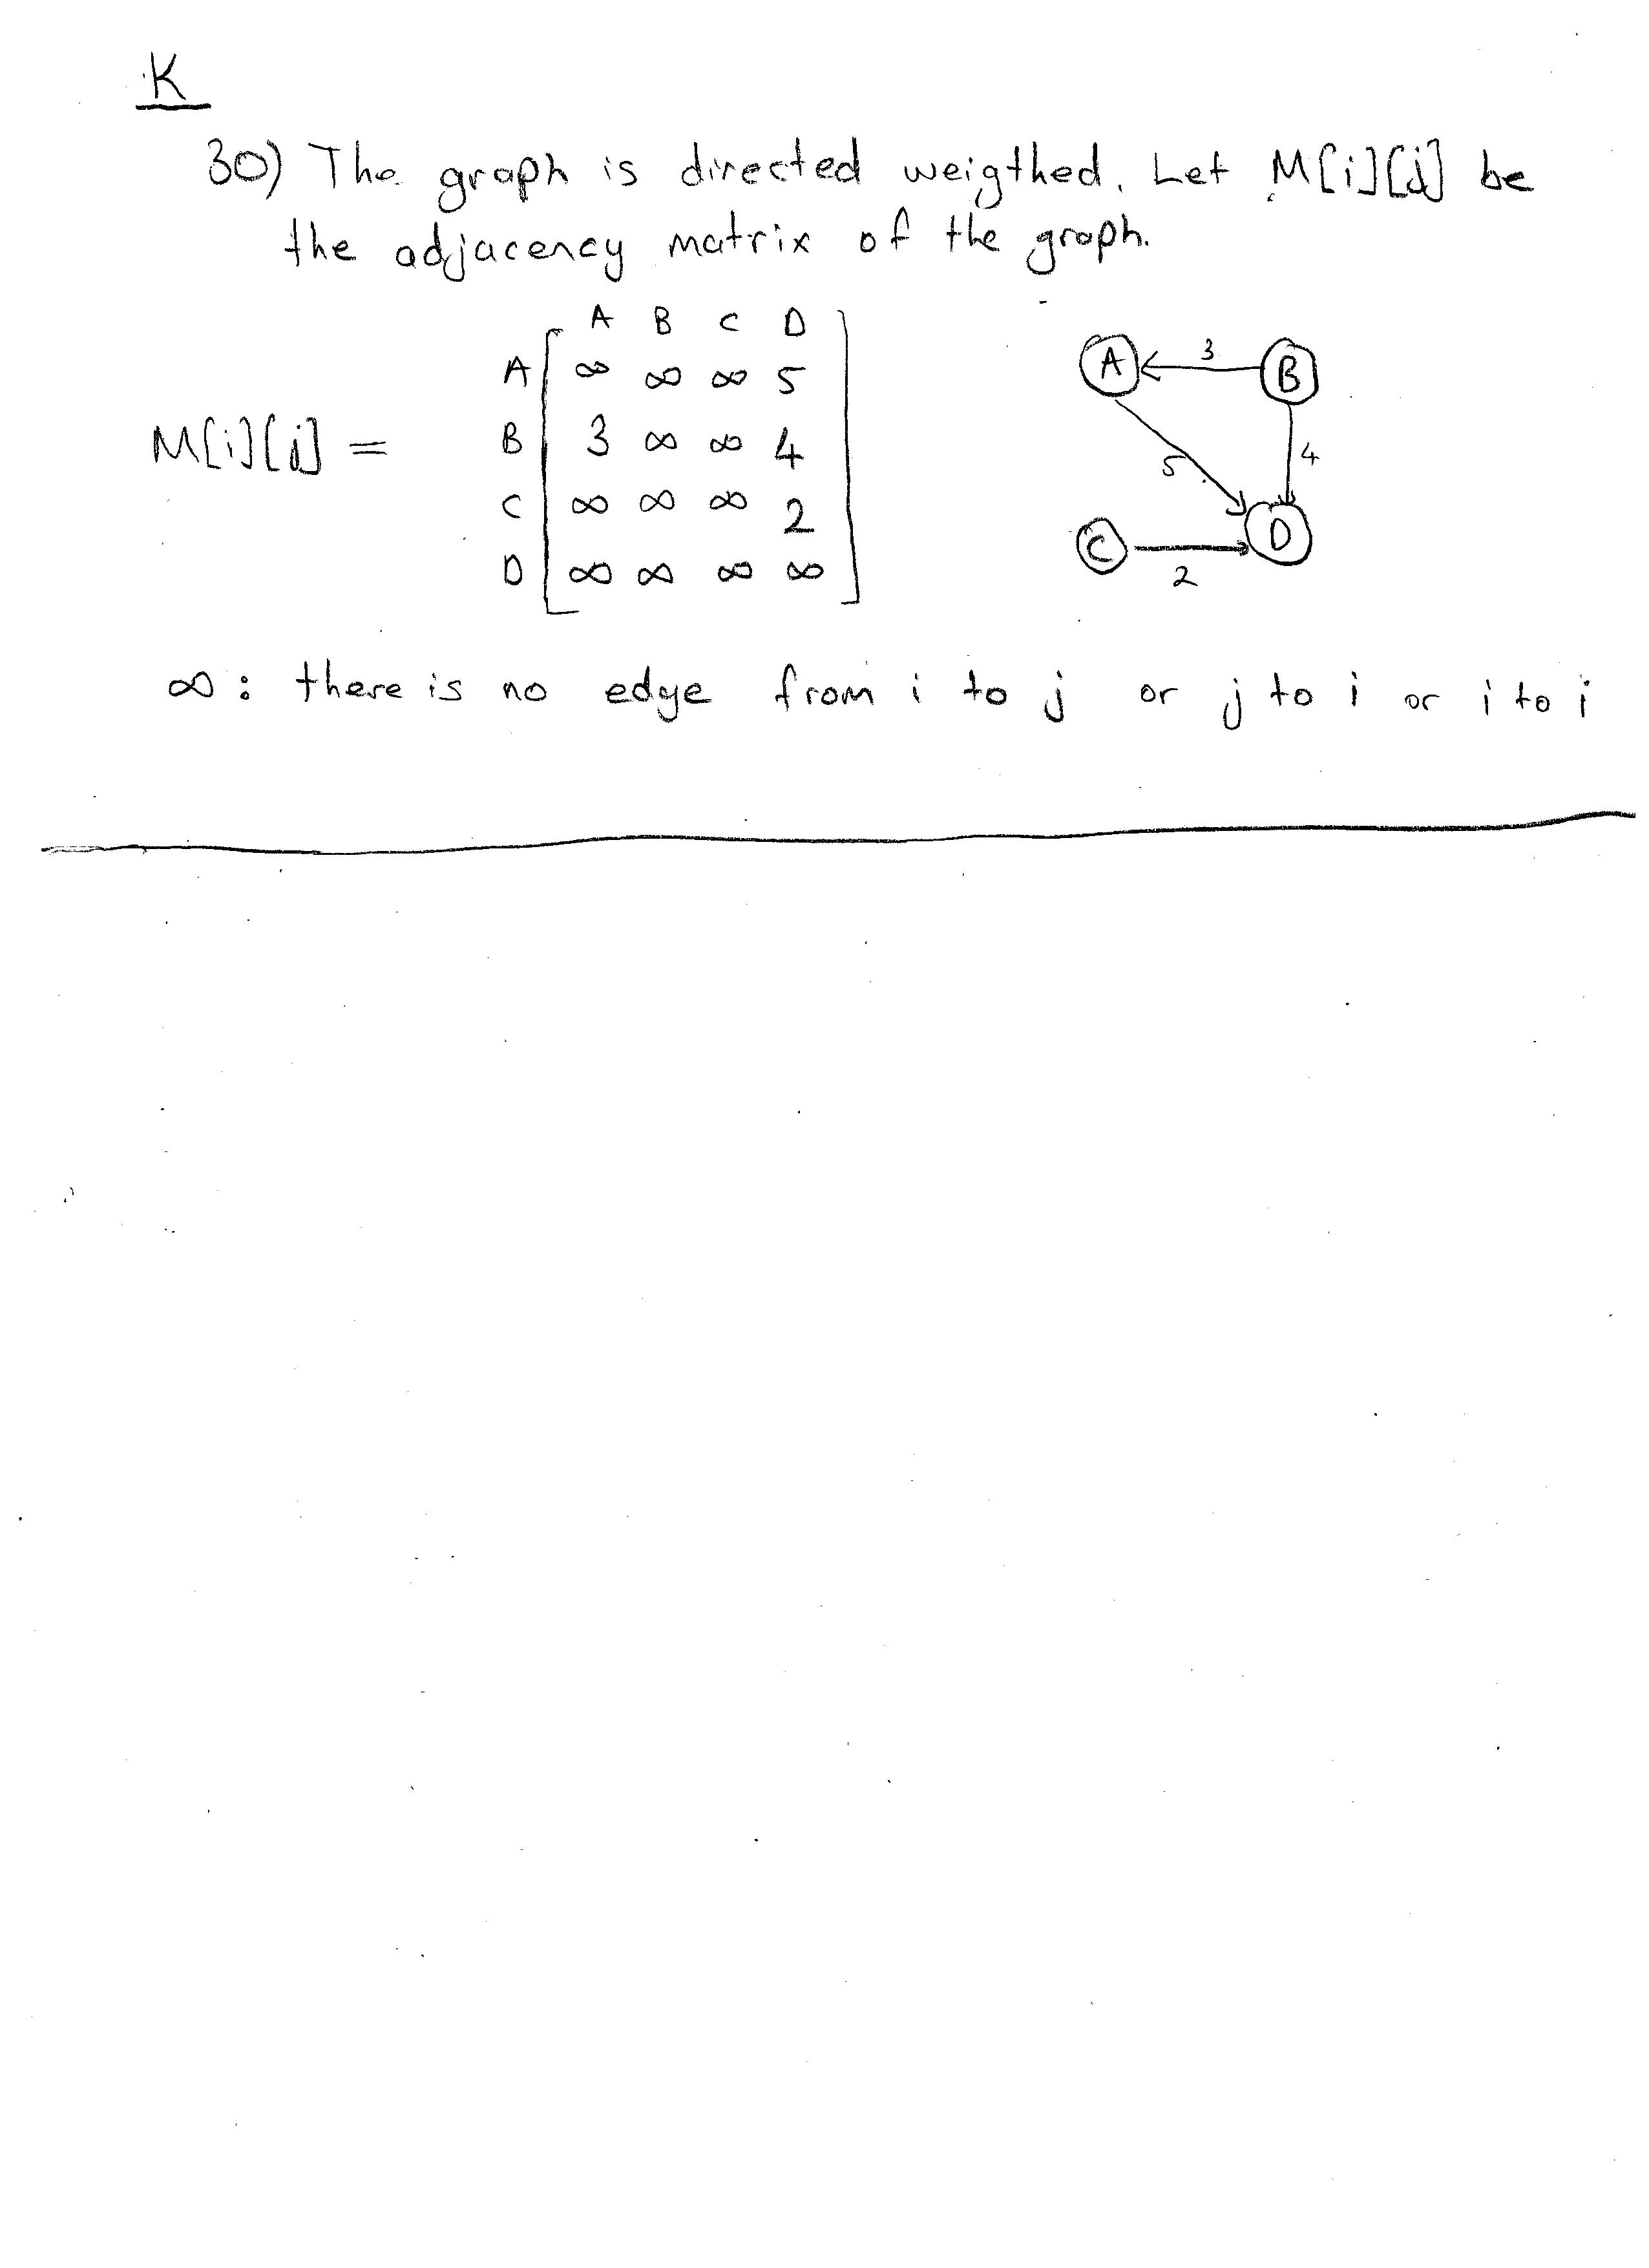 K
30) The graph is directed weigthed. Let M[i][j] be
the adjacency matrix of the graph.
A B C D
A ∞ ∞ ∞ 5
M[i][j] = B 3 ∞ ∞ 4
C ∞ ∞ ∞ 2
D ∞ ∞ ∞ ∞
A 3 B
5 4
C 2 D
∞ : there is no edge from i to j or j to i or i to i